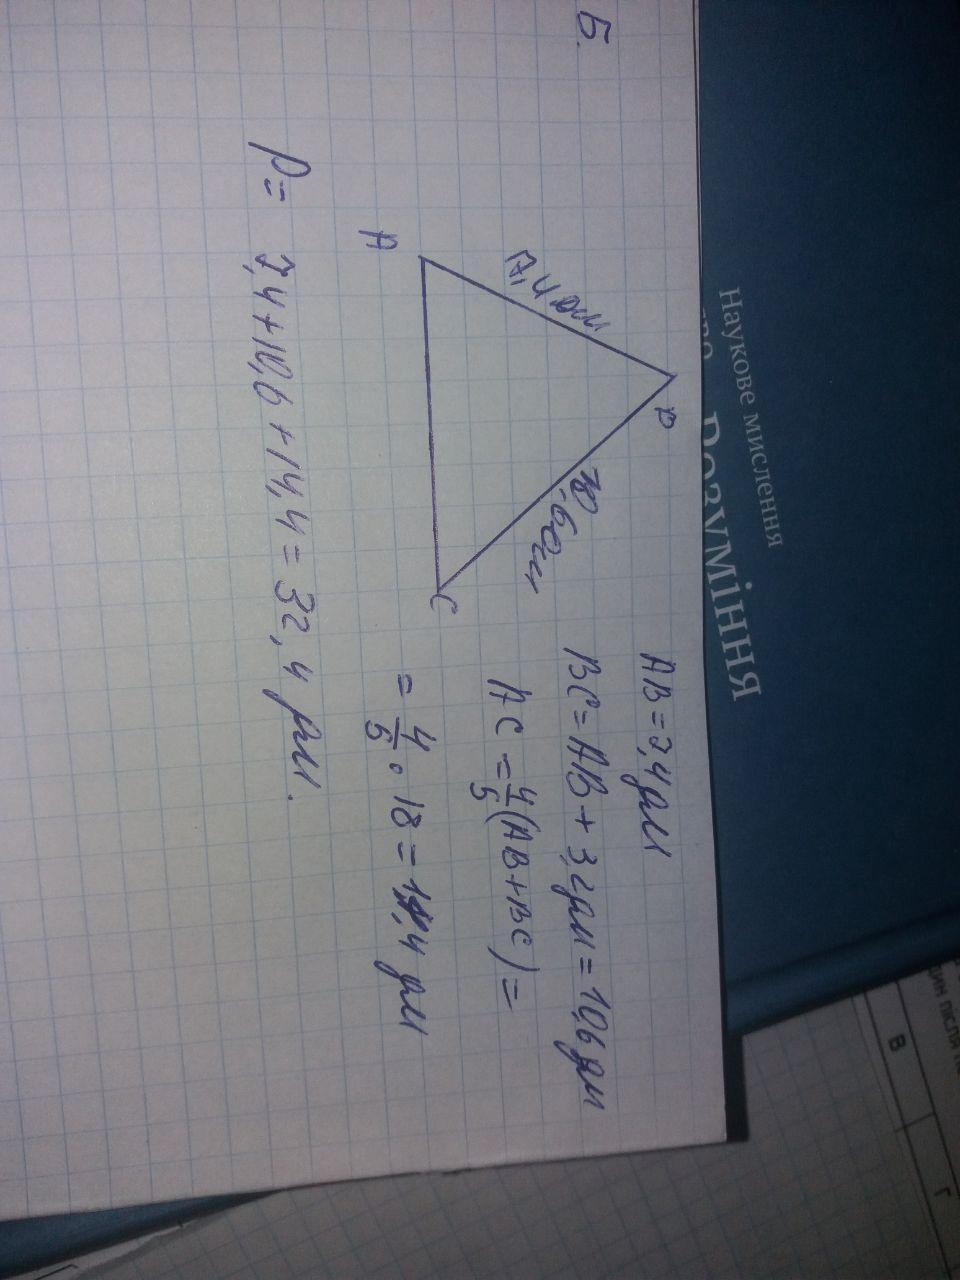 5.
A
B
C
7,4 дм
10,6 дм
AB = 7,4 дм
BC = AB + 3,2 дм = 10,6 дм
AC = 4/5 (AB + BC) =
= 4/5 · 18 = 14,4 дм
P = 7,4 + 10,6 + 14,4 = 32,4 дм.
Наукове мислення
Розуміння
В
Г